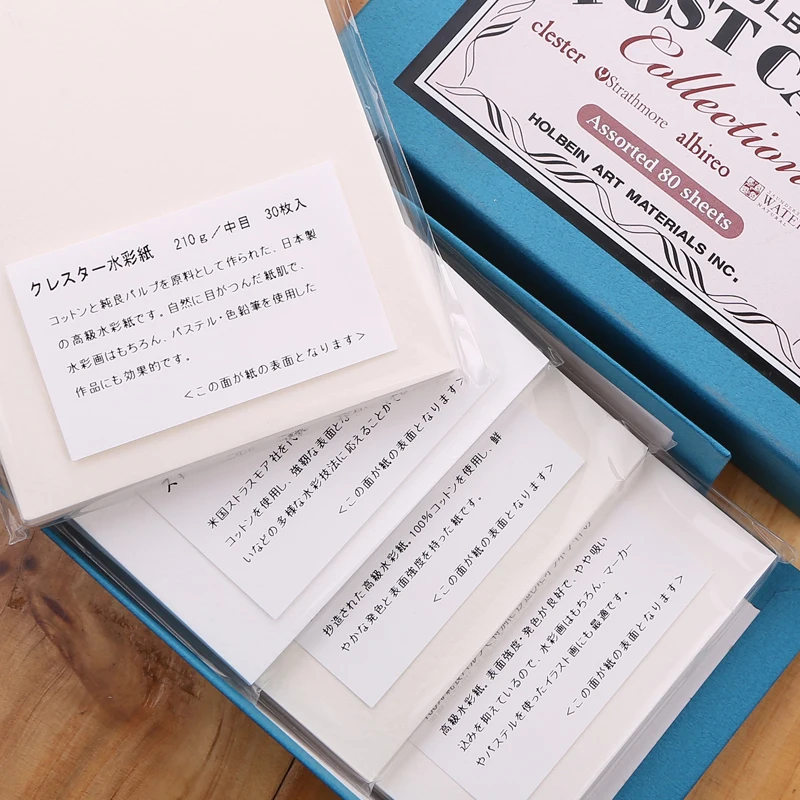 HOLB
POST CA
Collection
clester
Strathmore
albireo
Assorted 80 sheets
SAUNDERS
WATE
HOLBEIN ART MATERIALS INC.
クレスター水彩紙 210g／中目 30枚入
コットンと純良パルプを原料として作られた、日本製
の高級水彩紙です。自然に目がつんだ紙肌で、
水彩画はもちろん、パステル・色鉛筆を使用した
作品にも効果的です。
＜この面が紙の表面となります＞
ス
米国ストラスモア社を代
コットンを使用し、強靭な表面と
いなどの多様な水彩技法に応えることが
＜この面が紙の表面となります＞
抄造された高級水彩紙。100%コットンを使用し、鮮
やかな発色と表面強度を持った紙です。
＜この面が紙の表面となります＞
高級水彩紙。表面強度・発色が良好で、やや吸い
込みを抑えているので、水彩画はもちろん、マーカー
やパステルを使ったイラスト画にも最適です。
＜この面が紙の表面となります＞